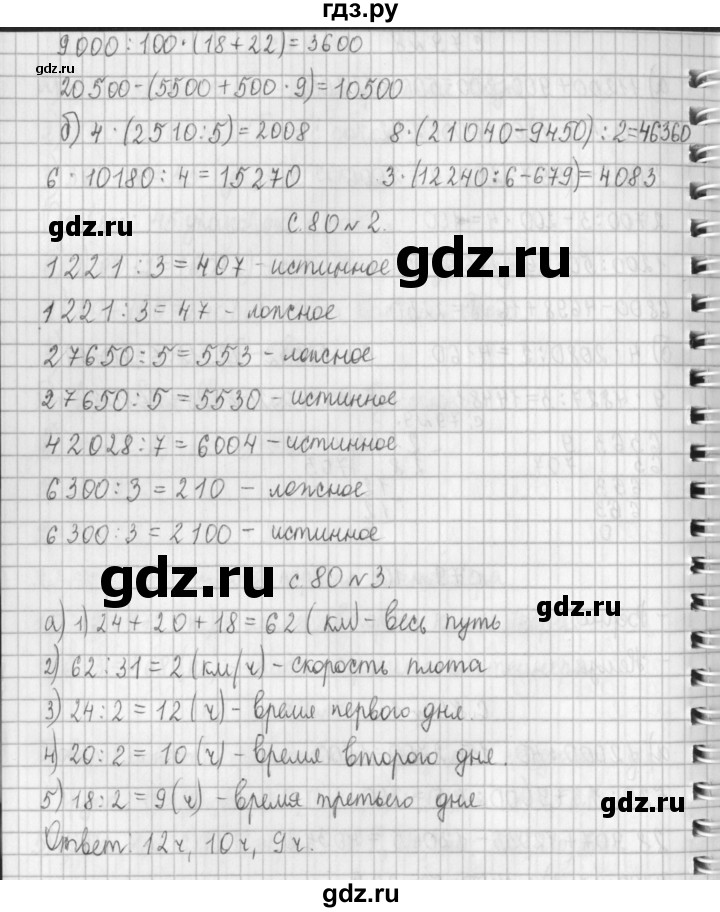 гдз.ру
9000:100·(18+22)=3600
gdz.ru
20500-(5500+500·9)=10500
б) 4·(2510:5)=2008 8·(21040-9450):2=46360
6·10180:4=15270 3·(12240:6-679)=4083
gdz.ru
с.80 №2.
gdz.ru
1221:3=407 - истинное
1221:3=47 - ложное
27650:5=553 - ложное
27650:5=5530 - истинное
42028:7=6004 - истинное
6300:3=210 - ложное
6300:3=2100 - истинное
gdz.ru
с.80 №3
gdz.ru
а) 1) 24+20+18=62 (км) - весь путь
2) 62:31=2 (км/ч) - скорость плота
3) 24:2=12 (ч) - время первого дня.
4) 20:2=10 (ч) - время второго дня.
5) 18:2=9 (ч) - время третьего дня
gdz.ru
Ответ: 12ч, 10ч, 9ч.
gdz.ru
gdz.ru